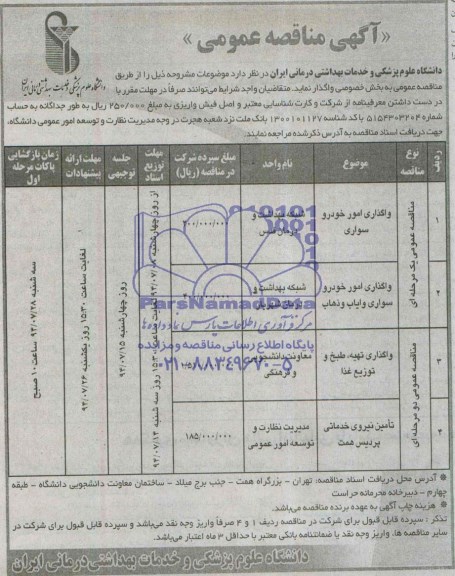 «آگهی مناقصه عمومی»
دانشگاه علوم پزشکی و خدمات بهداشتی درمانی ایران
دانشگاه علوم پزشکی و خدمات بهداشتی درمانی ایران در نظر دارد موضوعات مشروحه ذیل را از طریق
مناقصه عمومی به بخش خصوصی واگذار نماید. متقاضیان واجد شرایط می‌توانند صرفاً در مهلت مقرر با
در دست داشتن معرفینامه از شرکت و کارت شناسایی معتبر و اصل فیش واریزی به مبلغ ۲۵۰/۰۰۰ ریال به طور جداگانه به حساب
شماره ۵۱۵۴۳۰۳۲۰۴ با کد شناسه ۱۳۰۰۱۰۱۱۲۷ بانک ملت نزد شعبه هجرت در وجه مدیریت نظارت و توسعه امور عمومی دانشگاه،
جهت دریافت اسناد مناقصه به آدرس ذکر شده مراجعه نمایند.
ردیف
نوع مناقصه
موضوع
نام واحد
مبلغ سپرده شرکت در مناقصه (ریال)
مهلت توزیع اسناد
جلسه توجیهی
مهلت ارائه پیشنهادات
زمان بازگشایی پاکات مرحله اول
۱
مناقصه عمومی یک مرحله ای
واگذاری امور خودرو سواری
شبکه بهداشت و درمان
۲
واگذاری امور خودرو سواری وایاب و ذهاب
شبکه بهداشت و
۳
مناقصه عمومی دو مرحله ای
واگذاری تهیه، طبخ و توزیع غذا
معاونت دانشجویی و فرهنگی
۴
تأمین نیروی خدماتی پردیس همت
مدیریت نظارت و توسعه امور عمومی
۱۸۵/۰۰۰/۰۰۰
روز چهارشنبه ۹۴/۰۷/۱۵
لغایت ساعت ۱۵:۳۰ روز یکشنبه ۹۴/۰۷/۲۶
سه شنبه ۹۴/۰۷/۲۸ ساعت ۱۰ صبح
ParsNamadData
مرکز فرآوری اطلاعات پارس نماد داده‌ها
پایگاه اطلاع رسانی مناقصه و مزایده
۰۲۱-۸۸۳۴۹۶۷۰-۵
* آدرس محل دریافت اسناد مناقصه: تهران - بزرگراه همت - جنب برج میلاد - ساختمان معاونت دانشجویی دانشگاه - طبقه
چهارم - دبیرخانه محرمانه حراست
* هزینه چاپ آگهی به عهده برنده مناقصه می‌باشد.
تذکر: سپرده قابل قبول برای شرکت در مناقصه ردیف ۱ و ۴ صرفاً واریز وجه نقد می‌باشد و سپرده قابل قبول برای شرکت در
سایر مناقصه ها، واریز وجه نقد یا ضمانتنامه بانکی معتبر با حداقل ۳ ماه اعتبار می‌باشد.
دانشگاه علوم پزشکی و خدمات بهداشتی درمانی ایران